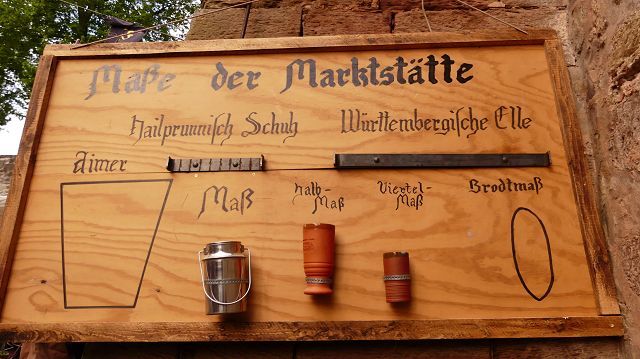 Maße der Marktstätte
Hailprunnisch Schuh
Württembergische Elle
Aimer
Maß
Halb-
Maß
Viertel-
Maß
Brodtmaß